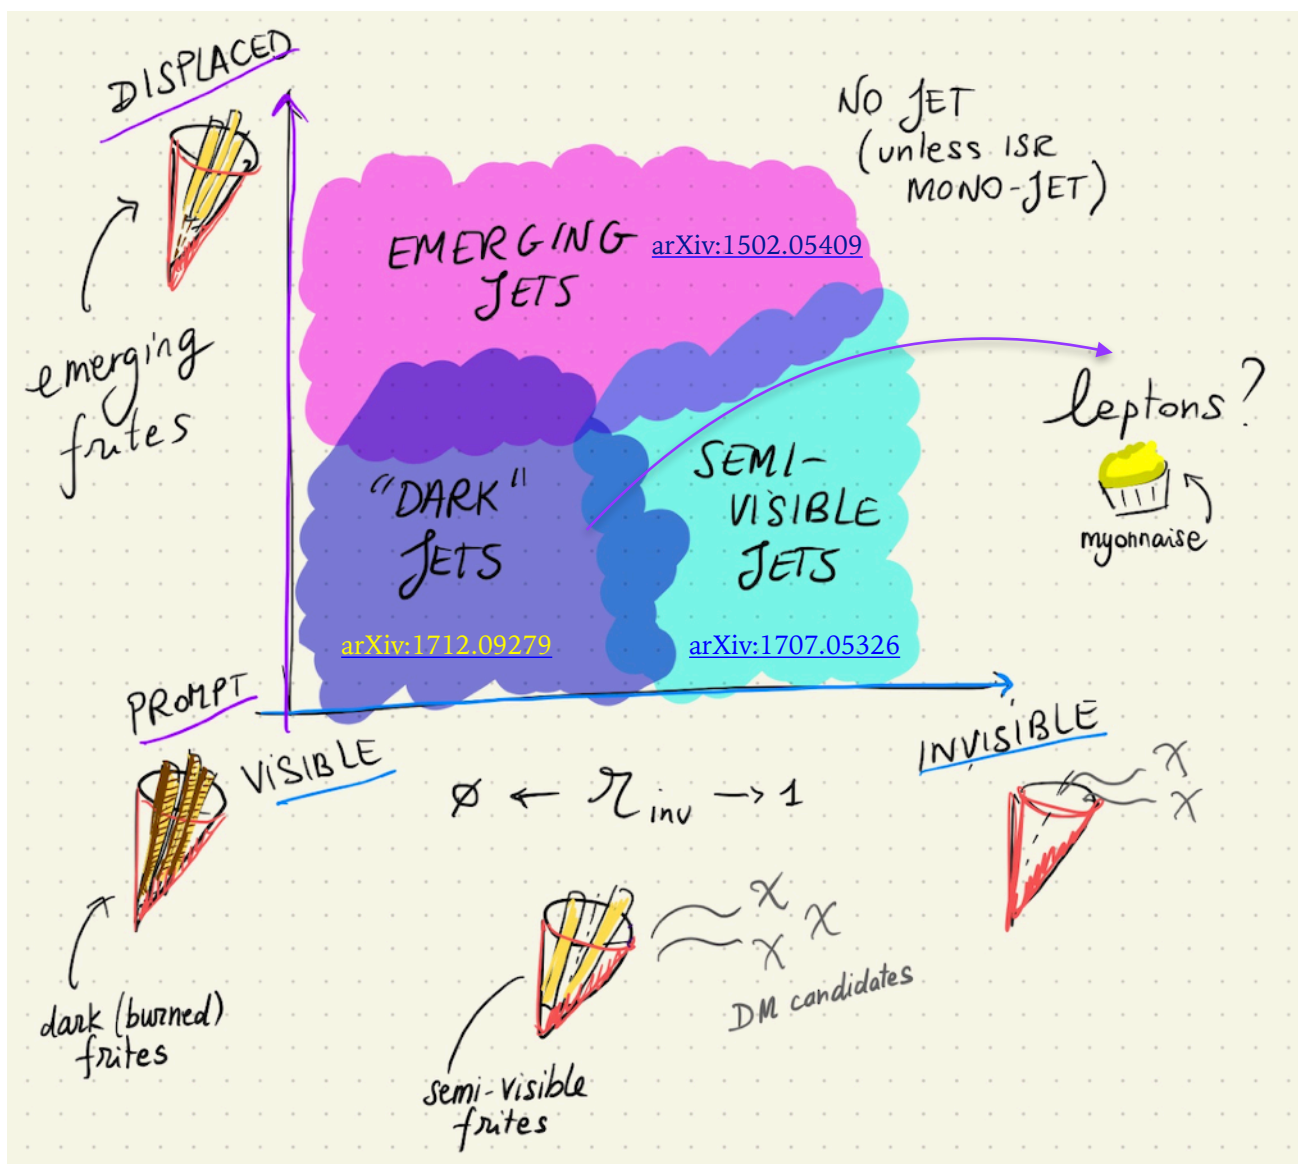 DISPLACED
NO JET
(unless ISR
MONO-JET)
EMERGING
JETS
arXiv:1502.05409
emerging
frites
leptons?
myonnaise
SEMI-
VISIBLE
JETS
"DARK"
JETS
arXiv:1712.09279
arXiv:1707.05326
PROMPT
VISIBLE
INVISIBLE
0 ← r inv → 1
χ
χ
χ
χ
χ
DM candidates
dark (burned)
frites
semi-visible
frites